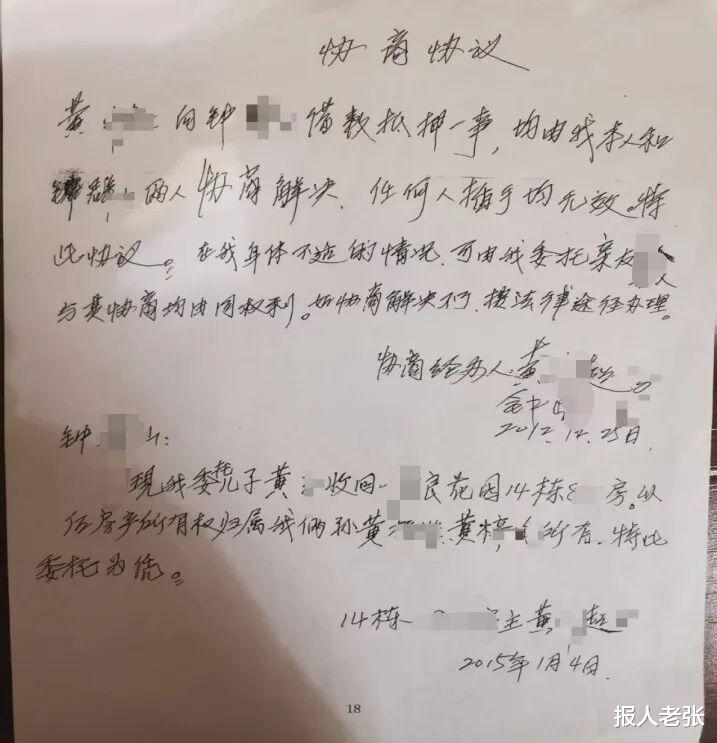 协商协议
黄 向钟 借款抵押一事，均由我本人和
两人协商解决，任何人插手均无效。特
此协议。在我身体不适的情况，可由我委托亲友 人
与其协商均由同权利。如协商解决不了，按法律途径办理。
协商经办人：黄 赵
2012.12.25日
钟
现我委托儿子黄 收回 民花园14栋 房。以
后房产所有权归属我俩孙黄 黄梓 所有，特此
委托为凭。
14栋 主黄 赵
2015年1月4日
18
报人老张